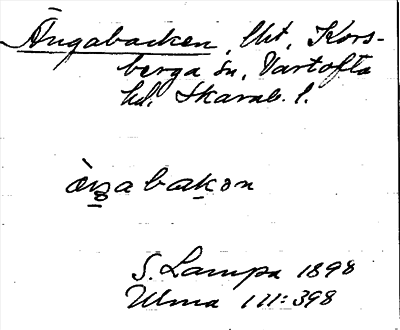 Ängabacken, lht, Kors-
berga sn, Vartofta
hd, Skarab. l.
àŋ̱abaḵən
S. Lampa 1898
Ulma 111:398